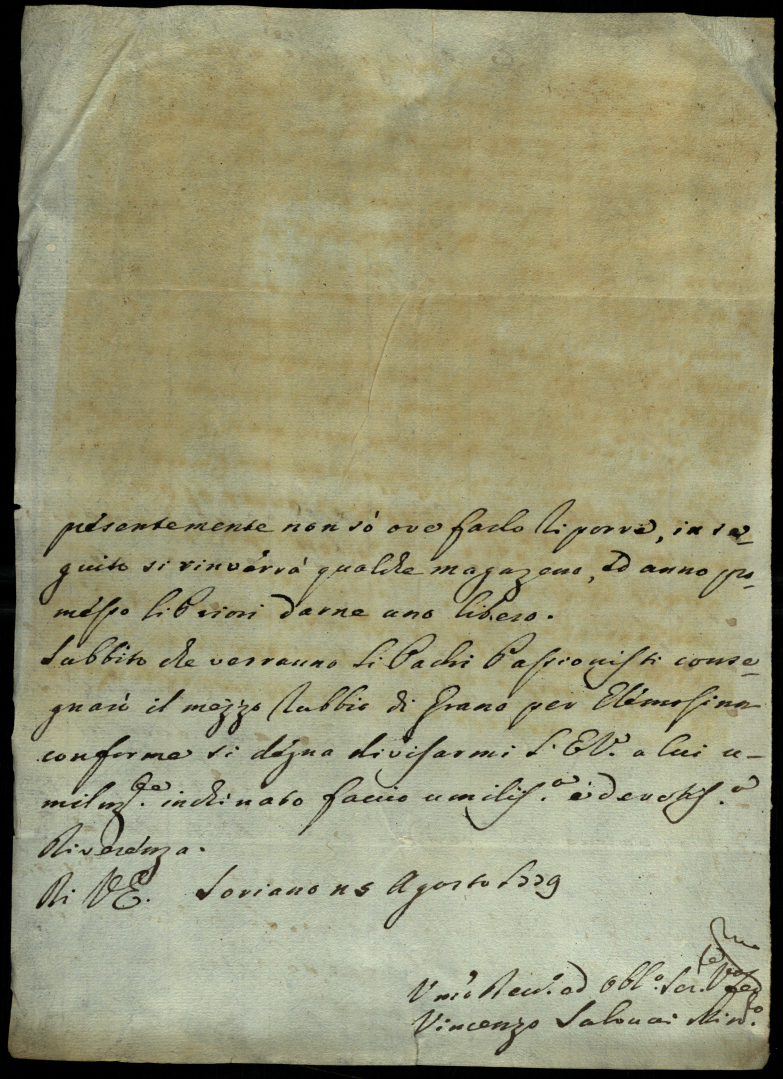 presentemente non só ove farlo riporre, in se=
guito si rinverrà qualche magazeno, ed anno pro=
messo li Priori darne uno libero.
Subbito che verranno li Padri Passionisti conse=
gnarò il mezzo Rubbio di Grano per Elemosina
conforme si degna divisarmi L'E.V. a lui u=
milm.te inchinato faccio umiliss.a e devotiss.a
Riverenza.
Di V.E. Soriano 15 Agosto 1779
Um.o Dev.o ed Obbl.o Ser.
Vincenzo Min.o